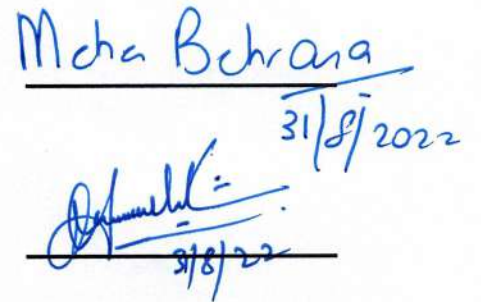 Maha Bahrana
31/8/2022
31/8/22